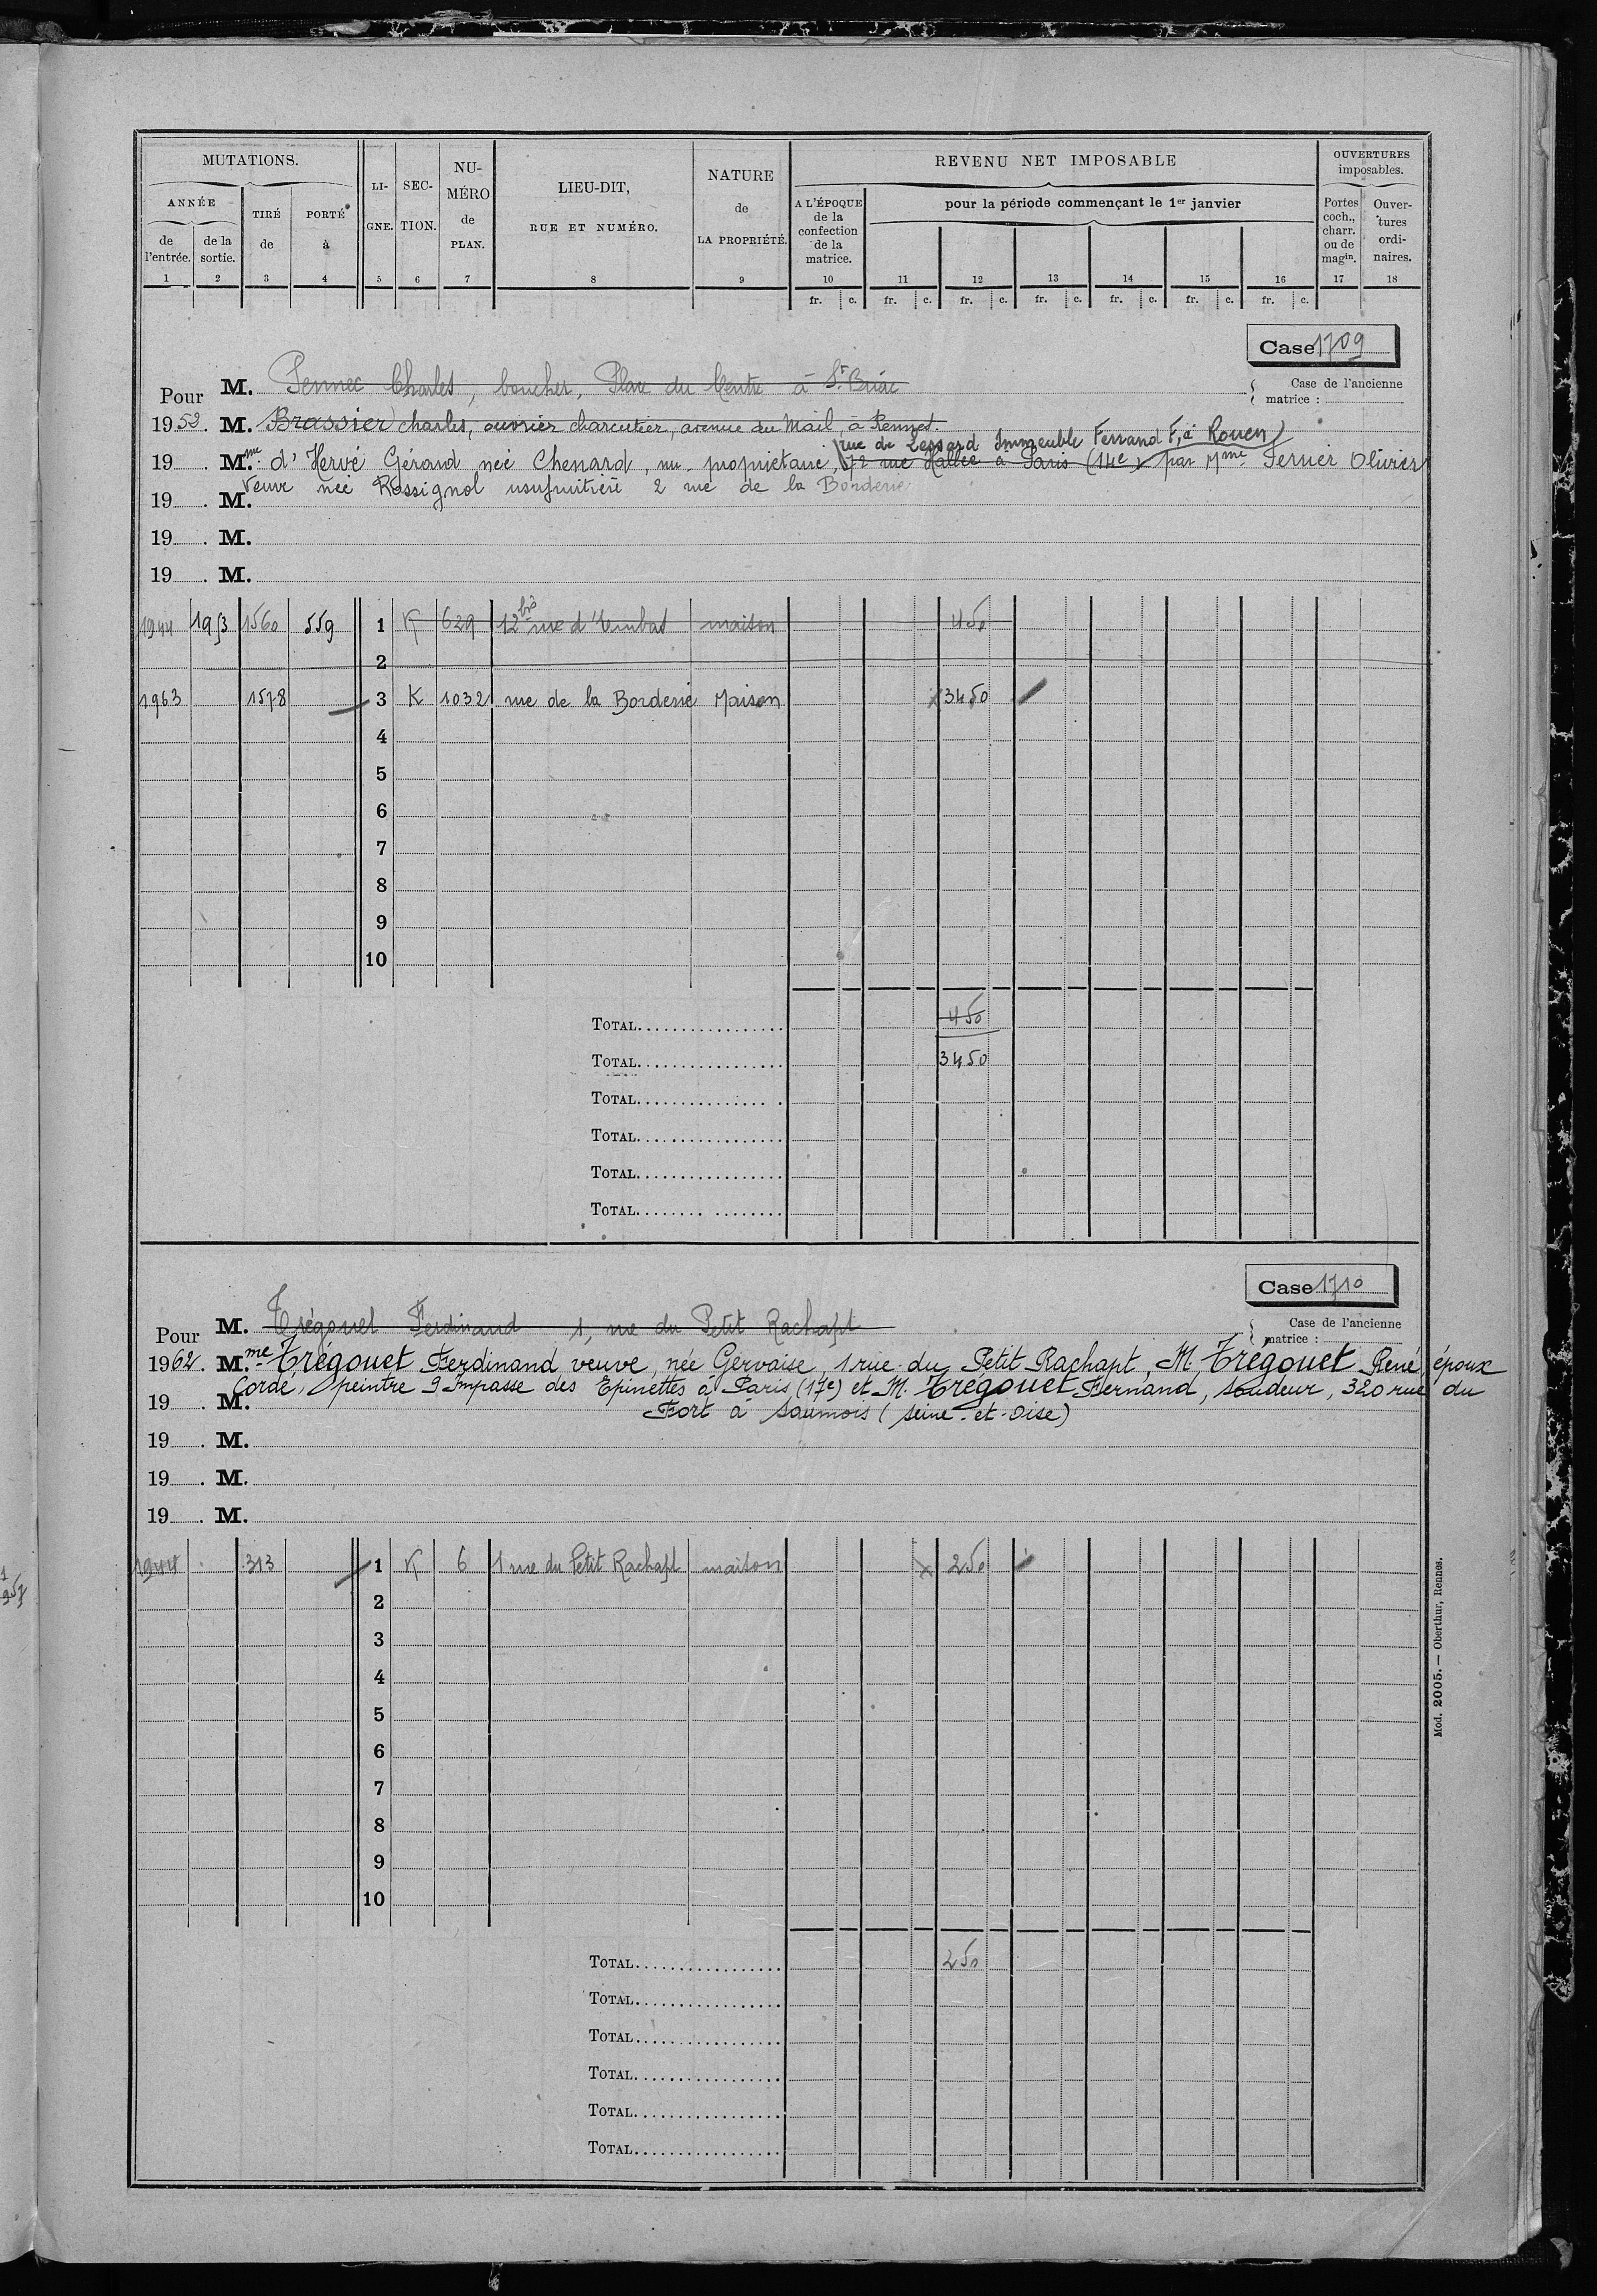 MUTATIONS.
ANNÉE
de l'entrée.
de la sortie.
TIRÉ de
PORTÉ à
LI-GNE.
SEC-TION.
NU-MÉRO de PLAN.
LIEU-DIT, RUE ET NUMÉRO.
NATURE de LA PROPRIÉTÉ.
REVENU NET IMPOSABLE
A L'ÉPOQUE de la confection de la matrice.
pour la période commençant le 1er janvier
OUVERTURES imposables.
Portes coch., charr. ou de magin.
Ouver-tures ordi-naires.
1 2 3 4 5 6 7 8 9 10 11 12 13 14 15 16 17 18
fr. c. fr. c. fr. c. fr. c. fr. c. fr. c. fr. c.
Case 1709
Pour M. Pennec Charles, boucher, Place du Centre à St Briac
Case de l'ancienne matrice :
1952. M. Brassier charles, ouvrier charcutier, avenue du Mail, à Rennes.
rue de Lessard Immeuble Ferrand F, à Rouen
19 . M.me d'Hervé Gérard née Chesnard, nu-propriétaire, 72 rue Hallée à Paris (14e) par Mme Ferrier Olivier
veuve née Rossignol usufruitière 2 rue de la Borderie
19 . M.
19 . M.
19 . M.
1944 1953 1560 559 1 K 629 12 bis rue d' maison 450
2
1963 1578 3 K 1032 rue de la Borderie Maison x 3450
4
5
6
7
8
9
10
TOTAL 450
TOTAL 3450
TOTAL
TOTAL
TOTAL
TOTAL
Case 1710
Pour M. Trégouet Ferdinand 1, rue du Petit Rachapt
Case de l'ancienne matrice :
1962. M.me Trégouet Ferdinand veuve, née Gervaise, 1 rue du Petit Rachapt, M. Trégouet René, époux
Cordé, peintre 9 Impasse des Epinettes à Paris (17e) et M. Trégouet Fernand, soudeur, 320 rue du
19 . M.
Fort à Sannois (Seine-et-Oise)
19 . M.
19 . M.
19 . M.
1944 313 1 K 6 1 rue du Petit Rachapt maison x 250
2
3
4
5
6
7
8
9
10
TOTAL 250
TOTAL
TOTAL
TOTAL
TOTAL
TOTAL
Mod. 2005. — Oberthur, Rennes.